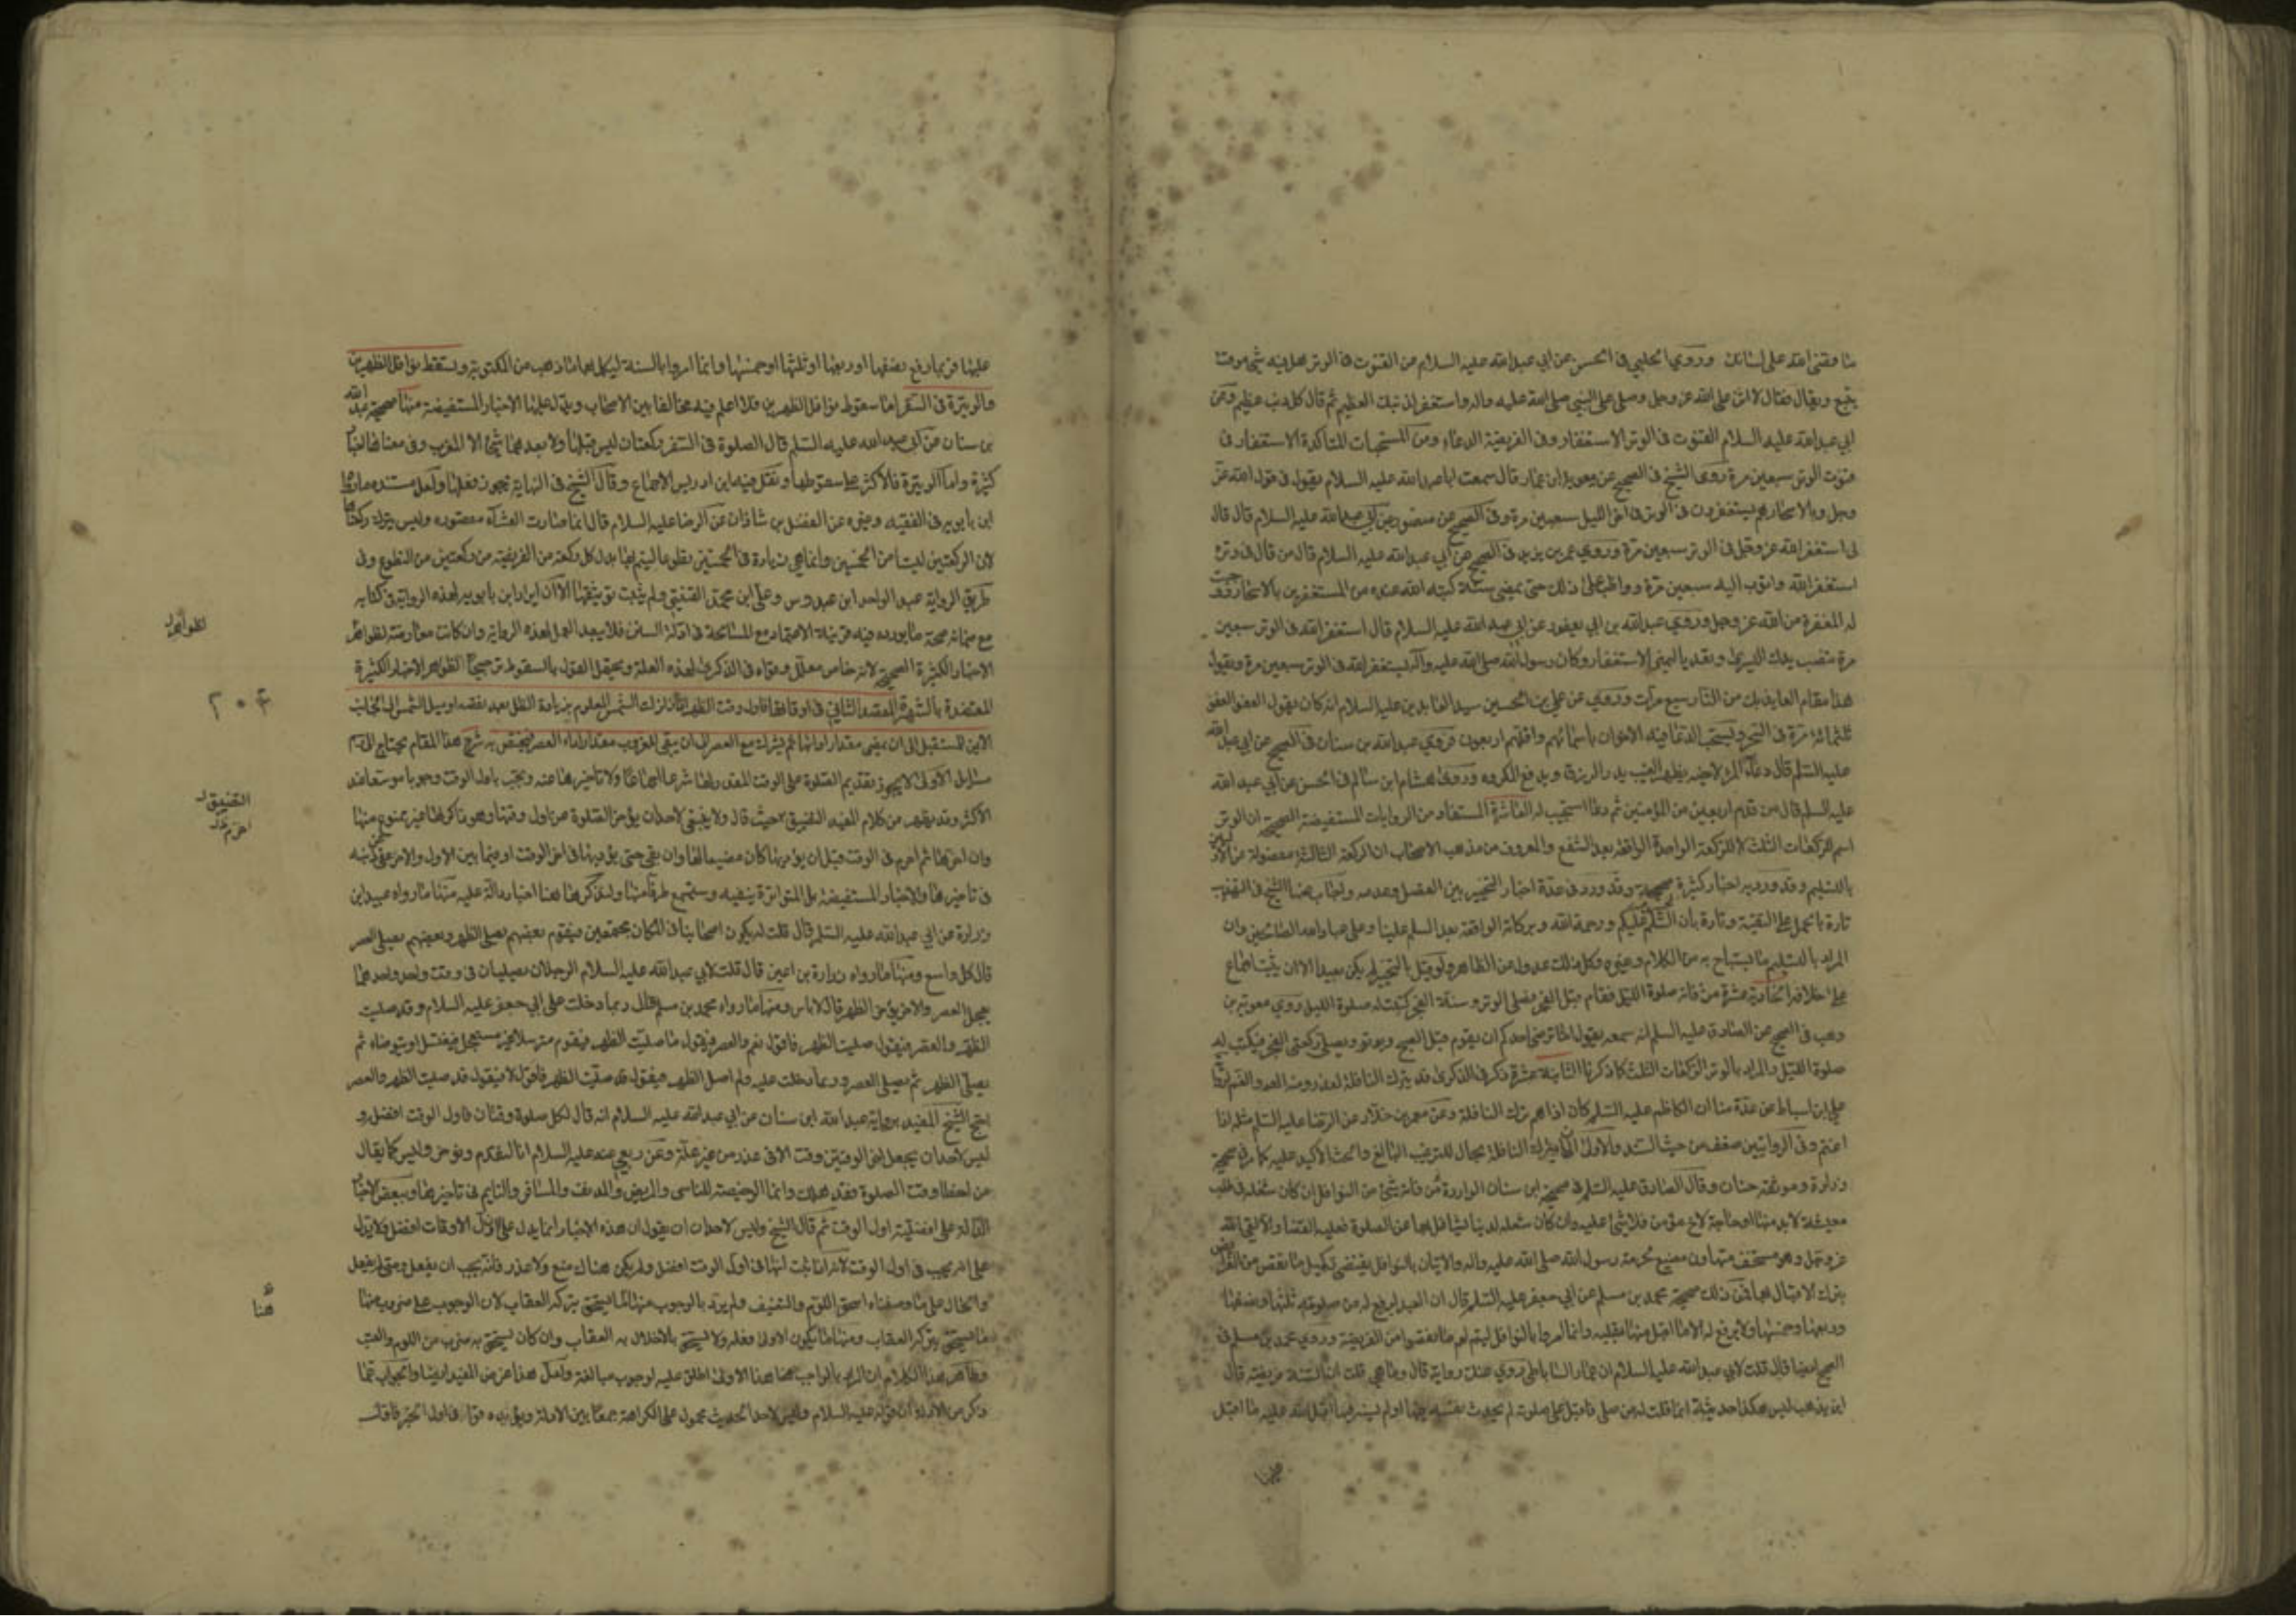 ما قضى الله على لسانك وروى الحلبي في الحسن عن أبي عبد الله عليه السلام عن القنوت في الوتر هل فيه شيء موقت
يتبع ويقال فقال لا اثن على الله عز وجل وصلى على النبي صلى الله عليه واله واستغفر لذنبك العظيم ثم قال كل ذنب عظيم وعن
ابي عبد الله عليه السلام القنوت في الوتر الاستغفار وفي الفريضة الدعاء ومن المستحبات المتأكدة الاستغفار في
قنوت الوتر سبعين مرة روى الشيخ في الصحيح عن معوية ابن عمار قال سمعت ابا عبد الله عليه السلام يقول في قول الله عز
وجل وبالاسحار هم يستغفرون في الوتر في اخر الليل سبعين مرة وفي الصحيح عن منصور عن ابي عبد الله عليه السلام قال قال
لي استغفر الله عز وجل في الوتر سبعين مرة وروى عمر بن يزيد في الصحيح عن ابي عبد الله عليه السلام قال من قال في وتره
استغفر الله واتوب اليه سبعين مرة وواظب على ذلك حتى يمضي سنة كتبه الله عنده من المستغفرين بالاسحار ووجبت
له المغفرة من الله عز وجل وروى عبد الله بن ابي يعفور عن ابي عبد الله عليه السلام قال استغفر الله في الوتر سبعين
مرة تنصب يدك اليسرى وتعد باليمنى الاستغفار وكان رسول الله صلى الله عليه وآله يستغفر الله في الوتر سبعين مرة ويقول
هذا مقام العايذ بك من النار سبع مرات وروى عن علي بن الحسين سيد العابدين عليه السلام انه كان يقول العفو العفو
ثلثمائة مرة في السحر ويستحب الدعا فيه لاخوان باسمائهم واقلهم اربعون فروى عبد الله بن سنان في الصحيح عن ابي عبد الله
عليه السلم قال دعاء المرء لاخيه بظهر الغيب يدر الرزق ويدفع المكروه وروى هشام ابن سالم في الحسن عن ابي عبد الله
عليه السلم قال من قدم اربعين من المؤمنين ثم دعا استجيب له العاشرة المستفاد من الروايات المستفيضة الصحيحة ان الوتر
اسم للركعات الثلث لا للركعة الواحدة الواقعة بعد الشفع والمعروف من مذهب الاصحاب ان الركعة الثالثة مفصولة عن الأوليين
بالتسليم وقد ورد به اخبار كثيرة صحيحة وقد ورد في عدة اخبار التخيير بين الفصل وعدمه واجاب عنها الشيخ في التهذيب
تارة بالحمل على التقية وتارة بأن السلام عليكم ورحمة الله وبركاته الواقعة بعد السلم علينا وعلى عباد الله الصالحين وان
المراد بالتسليم ما يستباح به من الكلام وغيره وكل ذلك عدول عن الظاهر ولو قيل بالتخيير لم يكن بعيدا الا ان يثبت اجماع
على خلافه الحادية عشرة من فاته صلوة الليل فقام قبل الفجر فصلى الوتر وسنة الفجر كتبت له صلوة الليل روى معوية بن
وهب في الصحيح عن الصادق عليه السلم انه سمعه يقول اما يرضى احدكم ان يقوم قبل الصبح ويوتر ويصلى ركعتي الفجر فيكتب له
صلوة الليل والمراد بالوتر الركعات الثلث كما ذكرنا الثانية عشرة ذكر في الذكرى قد يترك النافلة لعذر ومنه الهم والغم لرواية
علي ابن اسباط عن عدة منا ان الكاظم عليه السلم كان اذا اهتم ترك النافلة وعن معمر بن خلاد عن الرضا عليه السلم مثله اذا
اغتم وفي الروايتين ضعف من حيث السند والاولى الا يترك النافلة بحال للترغيب البالغ والحث الاكيد عليه كما في صحيحة
زرارة وموثقة حنان وقال الصادق عليه السلم في صحيحة ابن سنان الواردة فمن فاته شيء من النوافل ان كان شغله في طلب
معيشة لابد منها او حاجة لاخ مؤمن فلا شيء عليه وان كان شغله لدنيا تشاغل بها عن الصلوة فعليه القضا والا لقى الله
عز وجل وهو مستخف متهاون مضيع لحرمة رسول الله صلى الله عليه واله والاتيان بالنوافل يقتضي تكميل ما نقص من الفرائض
بترك الاقبال بها فمن ذلك صحيحة محمد بن مسلم عن ابي جعفر عليه السلم قال ان العبد ليرفع له من صلوته ثلثها ونصفها
وربعها وخمسها ولا يرفع له الا ما اقبل منها بقلبه وانما امروا بالنوافل ليتم لهم ما نقصوا من الفريضة وروى محمد بن مسلم في
الصحيح ايضا قال قلت لابي عبد الله عليه السلام ان عمار الساباطي روى عنك رواية قال وما هي قلت ان السنة فريضة قال
اين يذهب ليس هكذا حديثه انما قلت له من صلى فاقبل على صلوته لم يحدث نفسه فيها او لم يسه فيها اقبل الله عليه ما اقبل
عليها فربما رفع نصفها او ربعها او ثلثها او خمسها وانما امروا بالسنة ليكمل بها ما ذهب من المكتوبة ويسقط نوافل الظهرين
والوتيرة في السفر اما سقوط نوافل الظهرين فلا اعلم فيه مخالفا بين الاصحاب ويدل عليها الاخبار المستفيضة منها صحيحة عبد الله
بن سنان عن ابي عبد الله عليه السلم قال الصلوة في السفر ركعتان ليس قبلها ولا بعدهما شيء الا المغرب وفي معناها اخبار
كثيرة واما الوتيرة فالاكثر على سقوطها ونقل فيه ابن ادريس الاجماع وقال الشيخ في النهاية تجوز فعلها ولعل مستنده ما رواه
ابن بابويه في الفقيه وغيره عن الفضل بن شاذان عن الرضا عليه السلام قال انما صارت العشاء مقصورة وليس يترك ركعتاها
لان الركعتين ليستا من الخمسين وانما هي زيادة في الخمسين تطوعا ليتم بها بدل كل ركعة من الفريضة من ركعتين من التطوع وفي
طريق الرواية عبد الواحد ابن عبدوس وعلي ابن محمد القتيبي ولم يثبت توثيقهما الا ان ايراد ابن بابويه لهذه الرواية في كتابه
مع ضمانه صحة ما يورده فيه قرينة الاعتماد مع المسامحة في ادلة السنن فلا يبعد العمل بهذه الرواية وان كانت معارضة لظواهر
الاخبار الكثيرة الصحيحة لانه خاص معلل وقواه في الذكرى لهذه العلة ويحتمل القول بالسقوط ترجيحا لظواهر الاخبار الكثيرة
المعتضدة بالشهرة المقصد الثاني في اوقاتها فاول وقت الظهر اذا زالت الشمس المعلوم بزيادة الظل بعد نقصه او ميل الشمس الى الحاجب
الايمن للمستقبل الى ان يمضي مقدار ادائها ثم يشترك مع العصر الى ان يبقى للغروب مقدار اداء العصر فيختص به شرح هذا المقام يحتاج الى رسم
مسائل الاولى لا يجوز تقديم الصلوة على الوقت المقدر لها شرعا اجماعا ولا تاخيرها عنه ويجب باول الوقت وجوبا موسعا عند
الاكثر وقد يظهر من كلام المفيد التضييق حيث قال ولا ينبغي لاحد ان يؤخر الصلوة عن اول وقتها وهو ذاكر لها غير ممنوع منها
وان اخرها ثم اخترم في الوقت قبل ان يؤديها كان مضيعا لها وان بقي حتى يؤديها في اخر الوقت او فيما بين الاول والاخر عفى عن ذنبه
في تاخيرها والاخبار المستفيضة بل المتواترة ينفيه وستسمع طرفا منها ولنذكر هنا اخبار دالة عليه منها ما رواه عبيد ابن
زرارة عن ابي عبد الله عليه السلم قال قلت له يكون اصحابنا في المكان مجتمعين فيقوم بعضهم يصلي الظهر وبعضهم يصلي العصر
قال كل واسع ومنها ما رواه زرارة بن اعين قال قلت لابي عبد الله عليه السلام الرجلان يصليان في وقت واحد واحدهما
يعجل العصر والاخر يؤخر الظهر قال لا باس ومنها ما رواه محمد بن مسلم قال ربما دخلت على ابي جعفر عليه السلام وقد صليت
الظهر والعصر فيقول صليت الظهر فاقول نعم والعصر فيقول ما صليت الظهر فيقوم مترسلا غير مستعجل فيغتسل او يتوضاء ثم
يصلي الظهر ثم يصلي العصر وربما دخلت عليه ولم اصل الظهر فيقول قد صليت الظهر فاقول لا فيقول قد صليت الظهر والعصر
احتج الشيخ للمفيد برواية عبد الله ابن سنان عن ابي عبد الله عليه السلام انه قال لكل صلوة وقتان فاول الوقت افضل و
ليس لاحد ان يجعل اخر الوقتين وقت الا في عذر من غير علة وعن ربعي عنه عليه السلام انا لنقدم ونؤخر وليس كما يقال
من اخطا وقت الصلوة فقد هلك وانما الرخصة للناسي والمريض والمدنف والمسافر والنايم في تاخيرها وببعض الاخبار
الدالة على افضلية اول الوقت ثم قال الشيخ وليس لاحد ان يقول ان هذه الاخبار انما يدل على اول الاوقات افضل ولا يدل
على انه يجب في اول الوقت لانه اذا ثبت انها في اول الوقت افضل ولم يكن هناك منع ولا عذر فانه يجب ان يفعل ومتى لم يفعل
والحال على ما وصفناه استحق اللوم والتعنيف ولم يرد بالوجوب هنا ما يستحق بتركه العقاب لان الوجوب على ضروب منها
ما يستحق بتركه العقاب ومنها ما يكون الاولى فعله ولا يستحق بالاخلال به العقاب وان كان يستحق به ضرب من اللوم والعتب
وظاهر هذا الكلام ان المراد بالواجب هنا هذا الاولى اطلق عليه الوجوب مبالغة ولعل هذا غرض المفيد ايضا والجواب عما
ذكر من الادلة ان قوله عليه السلام وليس لاحد الحديث محمول على الكراهة جمعا بين الادلة ويؤيده قوله في اول الخبر فاول
لظواهر
٢٠٤
التضييق
اخترم
هنا
عليها